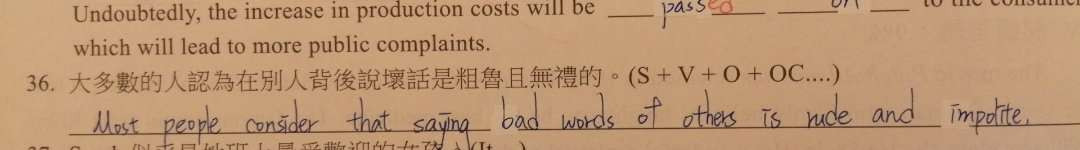 Undoubtedly, the increase in production costs will be ____ passed ____ on ____ to the consumer
which will lead to more public complaints.
36. 大多數的人認為在別人背後說壞話是粗魯且無禮的。(S + V + O + OC....)
Most people consider that saying bad words of others is rude and impolite.